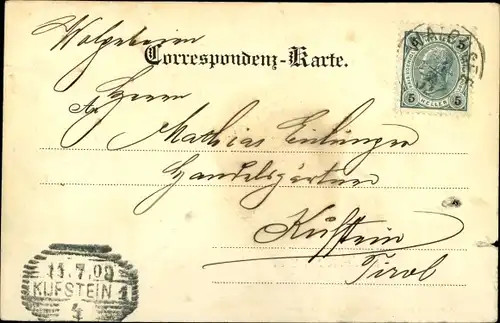 Correspondenz-Karte.
5 HELLER 5
An
Herrn
Mathias
Handelsgärtner
Kufstein
Tirol
11.7.00
KUFSTEIN 1
4